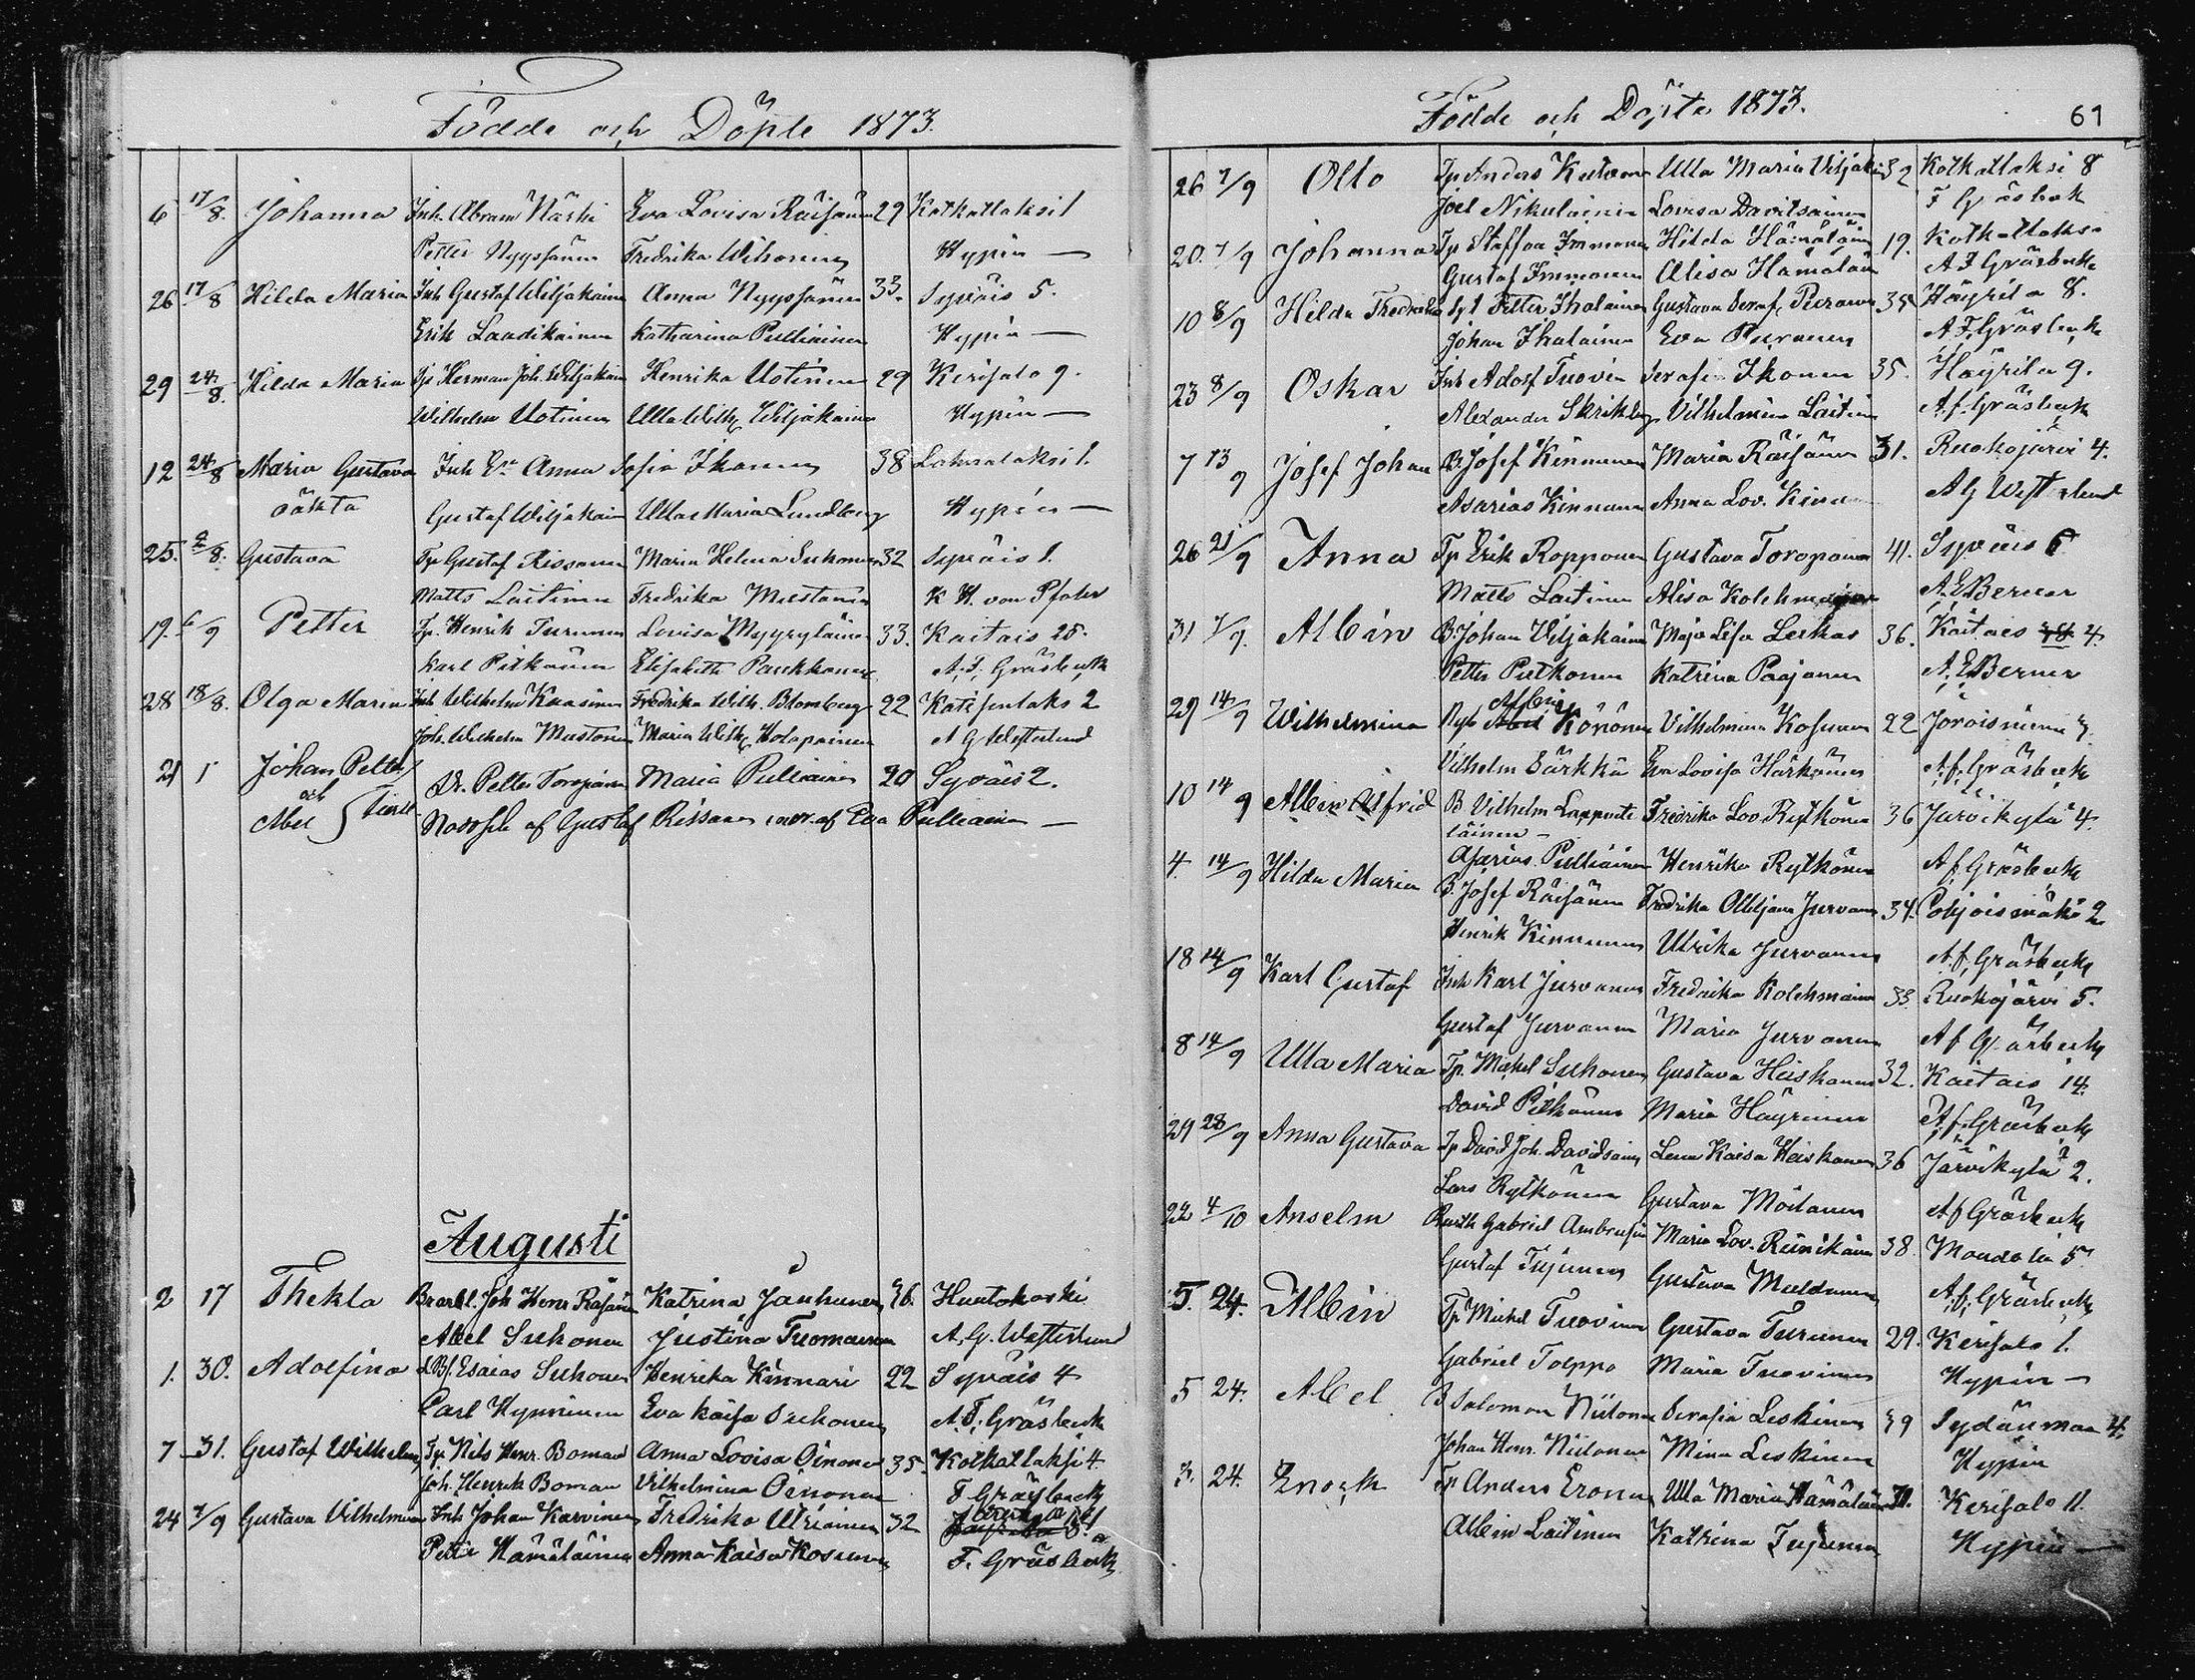 Födde och Döpte 1873.
6 17/8. Johanna Inh. Abram Närhi Eva Lovisa Räisänen 29 Kotkatlaksi 1
Petter Nyyssönen Fredrika Wihonen Hypén —
26 17/8 Hilda Maria Inh Gustaf Wiljakainen Anna Nyyssönen 33. Syväis 5.
Erik Laadikainen Katharina Pulliainen Hypén —
29 24/8. Hilda Maria Tp Herman Joh. Wiljakain Henrika Uotinen 29 Kerisalo 9.
Wilhelm Uotinen Ulla Wilh. Wiljakainen Hypén —
12 24/8 Maria Gustava Inh Anna Sofia Ikonen 38 Lahnalaksi 1.
oäkta Gustaf Wiljakain Ulla Maria Lundberg Hypén —
25. 2/8. Gustava Tp Gustaf Rissanen Maria Helena Suhonen 32 Syväis 1.
Matts Laitinen Fredrika Mustonen K H. von Pfaler
19. 6/9 Petter Tp. Henrik Turunen Lovisa Myyryläinen 33. Kaitais 25.
Karl Pitkänen Elisabeth Paukkonen A. F. Gräsbeck
28 18/8. Olga Maria Inh Wilhelm Kaasinen Fredrika Wilh. Blomberg 22 Katisenlaks 2
Joh. Wilhelm Mustonen Maria Wilh. Holopainen A G Westerlund
21 1 Johan Petter
och Abel Dr. Petter Toropainen Maria Pulliainen 20 Syväis 2.
af Gustaf Rissanen af Eva Pulliainen —
Augusti
2 17 Thekla Joh Henr Räsänen Katrina Jänhunen 46. Huutokoski
Abel Suhonen Justina Tuomainen A. G. Westerlund
1. 30. Adolfina Esaias Suhonen Henrika Kinnari 22 Syväis 4
Carl Hynninen Eva Kaisa Suhonen A. F. Gräsbeck
7 31. Gustaf Wilhelm Tp. Nils Henr. Boman Anna Lovisa Oinonen 35. Kotkatlaksi 4
Joh. Henrik Boman Vilhelmina Oinonen F. Gräsbeck
24 7/9 Gustava Vilhelmina Inh Johan Karvinen Fredrika Utriainen 32
Petter Hämäläinen Anna Kaisa Kosunen F. Gräsbeck
Födde och Döpte 1873.
61
26 7/9 Otto Tp Anders Kutvonen Ulla Maria Viljakain 32 Kotkatlaksi 8
Joel Nikulainen Lovisa Davitsainen F Gräsbeck
20. 7/9 Johanna Tp Staffan Immonen Hilda Hämäläin 19. Kotkatlaksi
Gustaf Immonen Alisa Hämäläin A F Gräsbeck
10 8/9 Hilda Fredrika Petter Ihalainen Gustava Seraf. Puranen 35 Häyrilä 8.
Johan Ihalainen Eva Puranen A. F. Gräsbeck
23 8/9 Oskar Inh Adolf Tuovin Serafia Ikonen 35. Häyrilä 9.
Alexander Skrikberg Vilhelmina Laitin A. f. Gräsbeck
7 13/9 Josef Johan B. Josef Kinnunen Maria Räisänen 31. Ruokojärvi 4.
Asarias Kinnunen Anna Lov. Kinn A G Westerlund
26 21/9 Anna Tp Erik Ropponen Gustava Toropainen 41. Syväis 6
Matts Laitinen Alisa Kolehmainen A. E. Berner
31 7/9. Albin B. Johan Viljakainen Maja Lisa Laukas 36. Kaitais 4.
Petter Putkonen Katrina Paajanen A. E. Berner
29 14/9 Wilhelmina Albin Könönen Vilhelmina Kosunen 22 Joroisniemi 7.
Vilhelm Särkkä Eva Lovisa Härkönen A. f. Gräsbeck
10 14/9 Albin Alfrid B Vilhelm Lappveteläinen Fredrika Lov. Rytkönen 36 Järvikylä 4.
Asarias Pulliainen Henrika Rytkönen A. f. Gräsbeck
4. 14/9 Hilda Maria B. Josef Räisänen Fredrika Jurvanen 34. Pohjoismäki 2
Henrik Kinnunen Ulrika Jurvanen A. f. Gräsbeck
18 14/9 Karl Gustaf Inh Karl Jurvanen Fredrika Kolehmainen 33. Ruokojärvi 5.
Gustaf Jurvanen Maria Jurvanen A f Gräsbeck
8 14/9 Ulla Maria Tp. Mickel Suhonen Gustava Heiskanen 32. Kaitais 14.
David Pitkänen Maria Häyrinen A. f. Gräsbeck
29 28/9 Anna Gustava Tp David Joh. Davidsainen Lena Kaisa Heiskanen 36 Järvikylä 2.
Lars Rytkönen Gustava Moilanen A f Gräsbeck
22 4/10 Anselm Gabriel Ambrusin Maria Lov. Reinikainen 38. Maavesi 5
Gustaf Tujunen Gustava Muldunen A. f. Gräsbeck
5. 24. Albin Tp. Mickel Tuovinen Gustava Turunen 29. Kerisalo 1.
Gabriel Tolppa Maria Tuovinen Hypén —
5 24. Abel B Salomon Niilonen Serafia Leskinen 39 Sydänmaa 4.
Johan Henr. Niilonen Mina Leskinen Hypén
3. 24. Enock Tp Anders Eronen Ulla Maria Hämäläinen Kerisalo 11.
Albin Laitinen Katrina Tujunen Hypén —